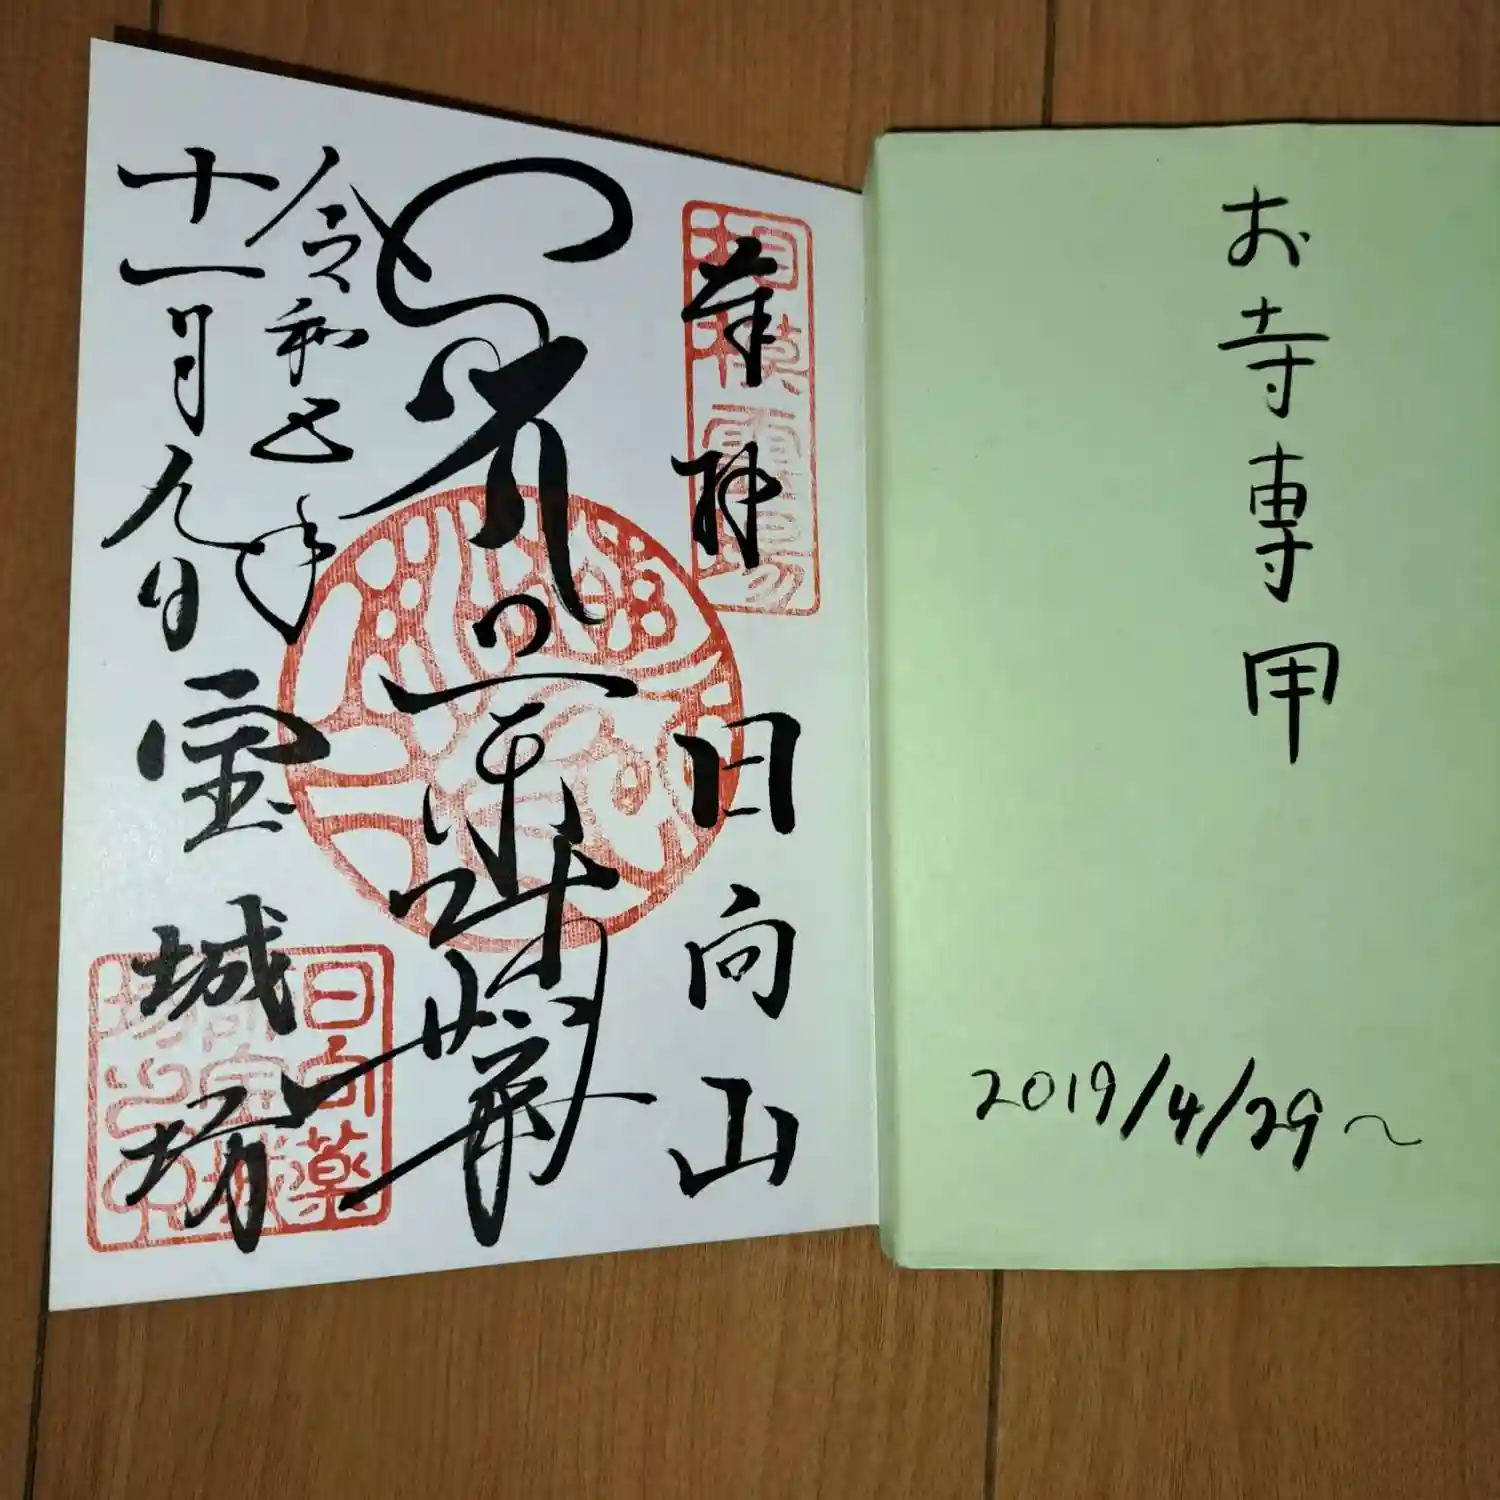 お寺専用
2019/4/29〜
奉拝 日向山
相模霊場
令和五年
十一月九日 宝城坊
日向薬
師宝城
坊之印